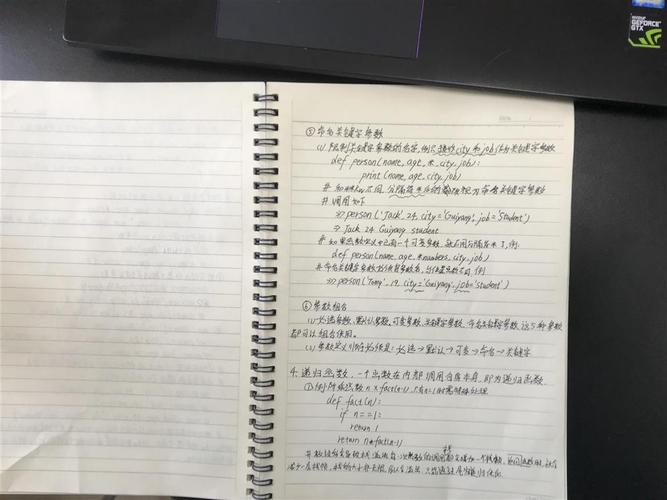 GEFORCE
GTX
⑤ 命名关键字参数
(1) 限制关键字参数的名字,例只接收city和job作为关键字参数
def person(name, age, *, city, job):
print(name, age, city, job)
# 和**kw不同,分隔符*后的参数被视为命名关键字参数
# 调用如下
>>> person('Jack', 24, city='Guiyang', job='Student')
=> Jack 24 Guiyang student
# 如果函数定义中已有一个可变参数,就不用分隔符*了,例:
def person(name, age, *numbers, city, job)
# 命名关键字参数必须传参数名,与位置参数不同,例
>>> person('Tony', 19, city='Guiyang', job='student')
⑥ 参数组合
(1) 必选参数、默认参数、可变参数、关键字参数、命名关键字参数,这5种参数
都可以组合使用。
(2) 参数定义顺序必须是:必选→默认→可变→命名→关键字
4. 递归函数,一个函数在内部调用自身本身,即为递归函数
①例阶乘函数 n × fact(n-1),只有n=1时需特殊处理
def fact(n):
if n==1:
return 1
return n*fact(n-1)